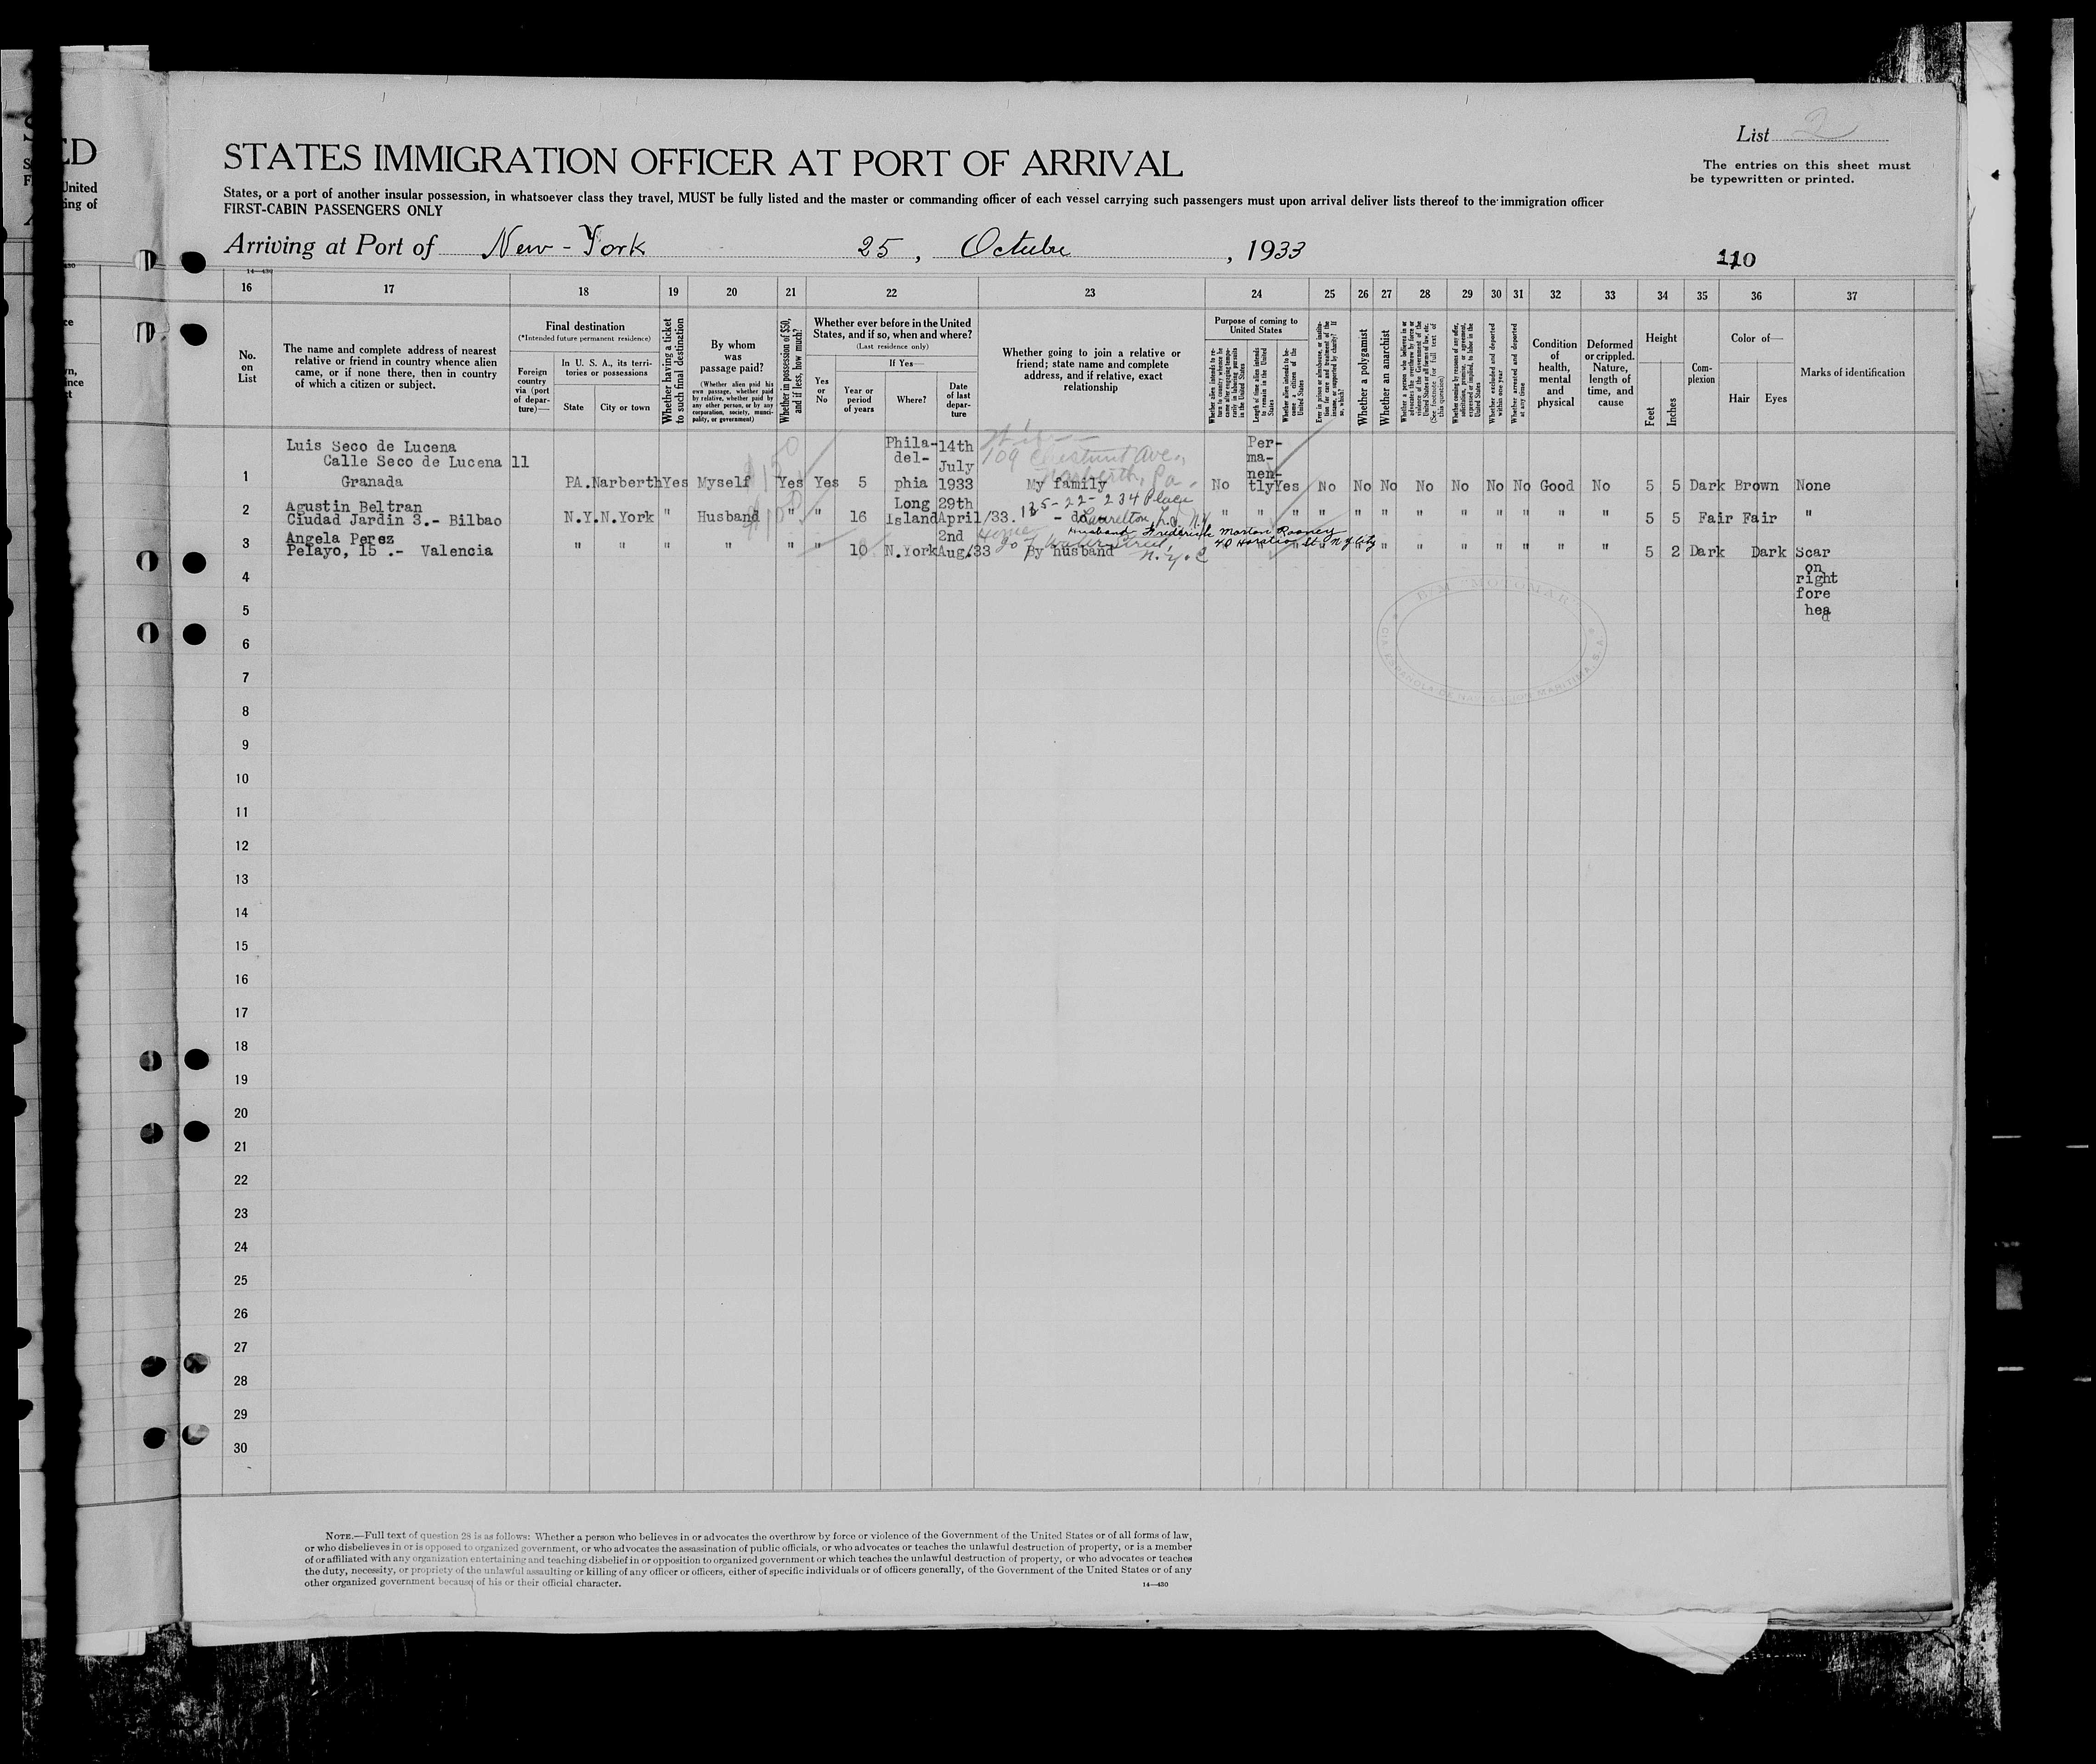 ED
United
ing of
List 2
STATES IMMIGRATION OFFICER AT PORT OF ARRIVAL
The entries on this sheet must
be typewritten or printed.
States, or a port of another insular possession, in whatsoever class they travel, MUST be fully listed and the master or commanding officer of each vessel carrying such passengers must upon arrival deliver lists thereof to the immigration officer
FIRST-CABIN PASSENGERS ONLY
Arriving at Port of New-York 25, Octubre, 1933
110
14—430
16 17 18 19 20 21 22 23 24 25 26 27 28 29 30 31 32 33 34 35 36 37
No.
on
List
The name and complete address of nearest
relative or friend in country whence alien
came, or if none there, then in country
of which a citizen or subject.
Final destination
(*Intended future permanent residence)
Foreign
country
via (port
of depar-
ture)—
In U. S. A., its terri-
tories or possessions
State City or town
Whether having a ticket
to such final destination
By whom
was
passage paid?
(Whether alien paid his
own passage, whether paid
by relative, whether paid by
any other person, or by any
corporation, society, munici-
pality, or government)
Whether in possession of $50,
and if less, how much?
Whether ever before in the United
States, and if so, when and where?
(Last residence only)
Yes
or
No
If Yes—
Year or
period
of years
Where?
Date
of last
depar-
ture
Whether going to join a relative or
friend; state name and complete
address, and if relative, exact
relationship
Purpose of coming to
United States
Whether alien intends to re-
turn to country whence he
came after engaging tempo-
rarily in laboring pursuits
in the United States
Length of time alien intends
to remain in the United
States
Whether alien intends to be-
come a citizen of the
United States
Ever in prison or almshouse, or institu-
tion for care and treatment of the
insane, or supported by charity? If
so, which?
Whether a polygamist
Whether an anarchist
Whether a person who believes in or
advocates the overthrow by force or
violence of the Government of the
United States or all forms of law, etc.
(See footnote for full text of
this question)
Whether coming by reason of any offer,
solicitation, promise, or agreement,
expressed or implied, to labor in the
United States
Whether excluded and deported
within one year
Whether arrested and deported
at any time
Condition
of
health,
mental
and
physical
Deformed
or crippled.
Nature,
length of
time, and
cause
Height
Feet Inches
Com-
plexion
Color of—
Hair Eyes
Marks of identification
Luis Seco de Lucena
Calle Seco de Lucena 11
Granada
1 PA. Narberth Yes Myself $150 Yes Yes 5 Phila-del-phia 14th July 1933 109 Chestnut Ave., Narberth, Pa. My family No Per-ma-nen-tly Yes No No No No No No No Good No 5 5 Dark Brown None
2 Agustin Beltran
Ciudad Jardin 3.- Bilbao N.Y. N.York " Husband " " 16 Long Island 29th April/33. 135-22-234 Place - do Laurelton, L.I. N.Y. " " " " " " " " " " " " 5 5 Fair Fair "
3 Angela Perez
Pelayo, 15 .- Valencia " " " " " " 10 N.York 2nd Aug/33 By husband N.Y.C Husband Frederick Morton Rooney 40 Horatio St. N.Y. City " " " " " " " " " " 5 2 Dark Dark Scar
on
right
fore
head
4
5
6
7
8
9
10
11
12
13
14
15
16
17
18
19
20
21
22
23
24
25
26
27
28
29
30
B/M "MOTOMAR"
CIA ESPAÑOLA DE NAVEGACION MARITIMA, S. A.
NOTE.—Full text of question 28 is as follows: Whether a person who believes in or advocates the overthrow by force or violence of the Government of the United States or of all forms of law,
or who disbelieves in or is opposed to organized government, or who advocates the assassination of public officials, or who advocates or teaches the unlawful destruction of property, or is a member
of or affiliated with any organization entertaining and teaching disbelief in or opposition to organized government or which teaches the unlawful destruction of property, or who advocates or teaches
the duty, necessity, or propriety of the unlawful assaulting or killing of any officer or officers, either of specific individuals or of officers generally, of the Government of the United States or of any
other organized government because of his or their official character.
14—430